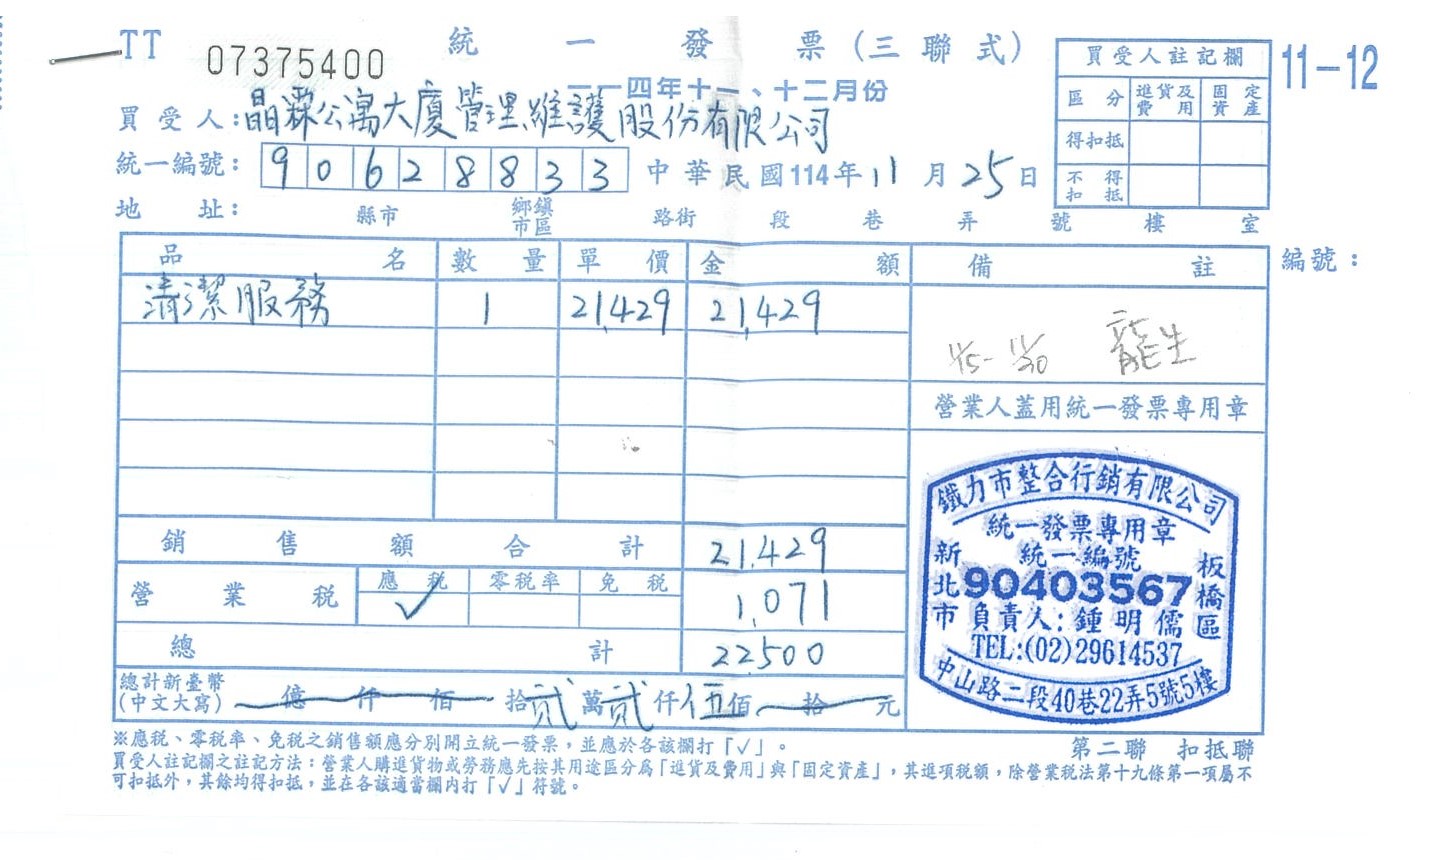 TT 07375400 統一發票(三聯式)
一一四年十一、十二月份
11-12
買受人:晶霖公寓大廈管理維護股份有限公司
統一編號:90628833 中華民國114年11月25日
地址: 縣市 鄉鎮市區 路街 段 巷 弄 號 樓 室
買受人註記欄
區分 進貨及費用 固定資產
得扣抵
不得扣抵
品名 數量 單價 金額 備註
編號:
清潔服務 1 21,429 21,429
11/5-11/20 龍生
營業人蓋用統一發票專用章
銷售額合計 21,429
營業稅 應稅 ✓ 零稅率 免稅 1,071
總計 22,500
總計新臺幣
(中文大寫) 億仟佰拾貳萬貳仟伍佰拾元
鐵力市整合行銷有限公司
統一發票專用章
統一編號
90403567
負責人:鍾明儒
TEL:(02)29614537
新北市 板橋區
中山路二段40巷22弄5號5樓
※應稅、零稅率、免稅之銷售額應分別開立統一發票,並應於各該欄打「✓」。
第二聯 扣抵聯
買受人註記欄之註記方法:營業人購進貨物或勞務應先按其用途區分為「進貨及費用」與「固定資產」,其進項稅額,除營業稅法第十九條第一項屬不
可扣抵外,其餘均得扣抵,並在各該適當欄內打「✓」符號。